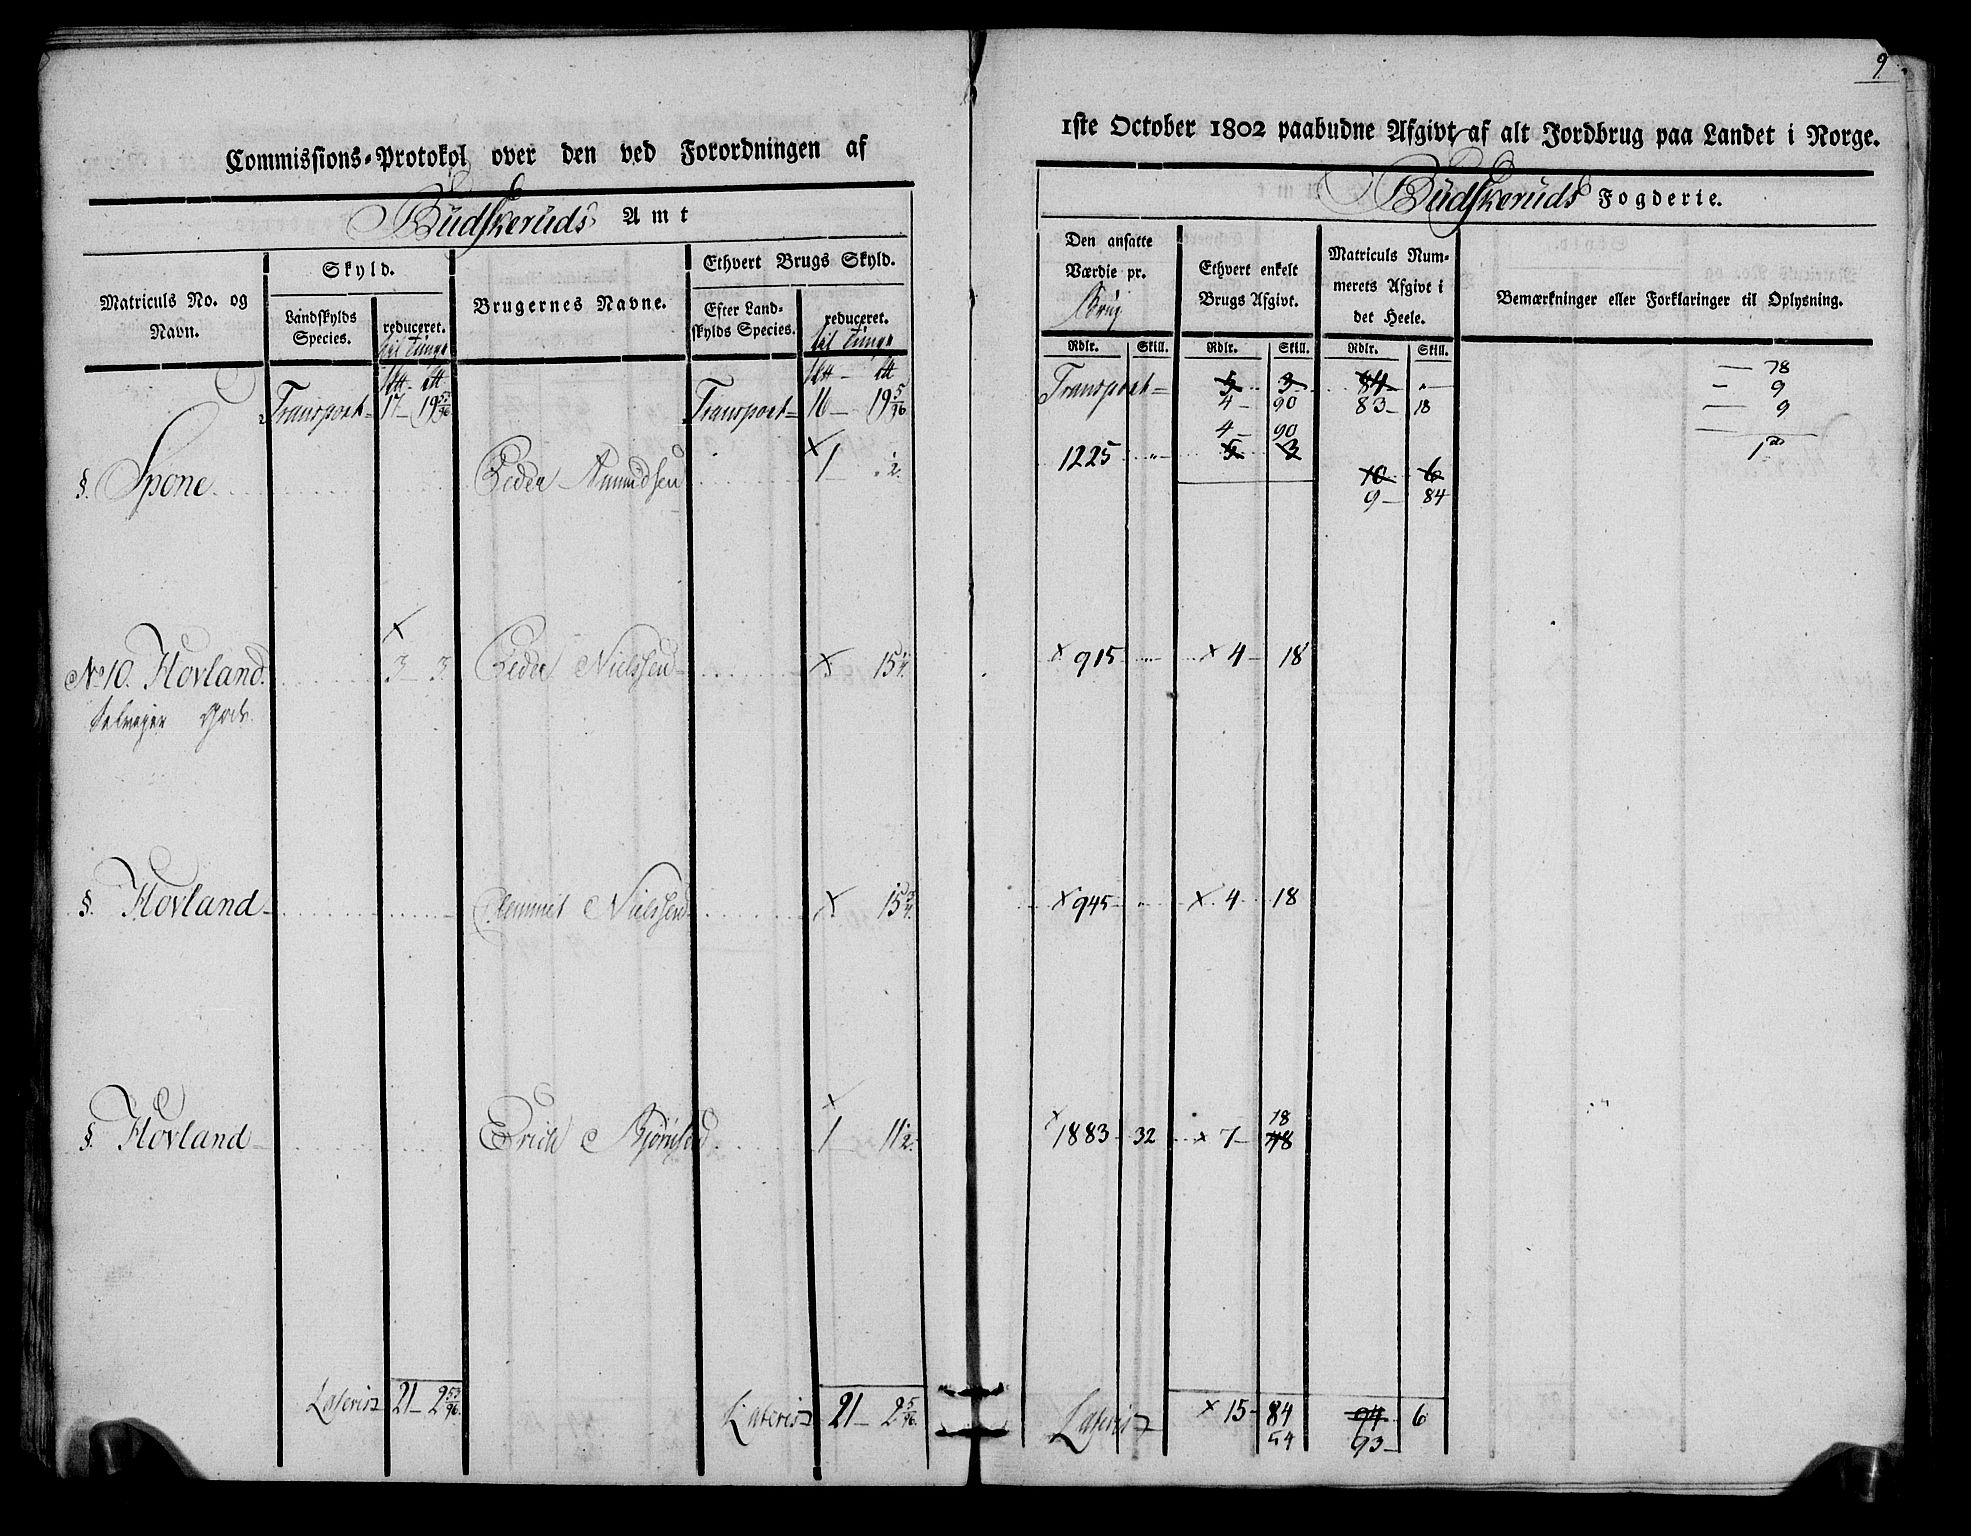 9
Commissions-Protokol over den ved Forordningen af
1ste October 1802 paabudne Afgivt af alt Jordbrug paa Landet i Norge.
Budskeruds Amt
Budskeruds Fogderie.
Matriculs No. og Navn.
Skyld.
Landskylds Species.
reduceret.
til Tunge
Brugernes Navne.
Ethvert Brugs Skyld.
Efter Landskylds Species.
reduceret.
til Tunge
Den ansatte Værdie pr. Brug
Rdlr. Skill.
Ethvert enkelt Brugs Afgivt.
Rdlr. Skill.
Matriculs Nummerets Afgivt i det Heele.
Rdlr. Skill.
Bemærkninger eller Forklaringer til Oplysning.
Transport 17 19 53/96 Transport 16 19 5/96 Transport 5 3 84 "
4 90 83 18
78
9
9
§. Spone Peder Amundsen x 1 1/2 1225 " 5 3 10 6
4 90 9 84
No 10. Hovland 3 3 Peder Nielssen x 15 1/4 x 915 x 4 18
Selveier Gods
§. Hovland Clemmet Nielssen x 15 3/4 x 945 x 4 18
§. Hovland Erich Bjørnsen x 1 11 1/2 x 1883 32 x 7 48
18
Lateris 21 2 53/96 Lateris 21 2 5/96 Lateris x 15 84 94 6
54 93